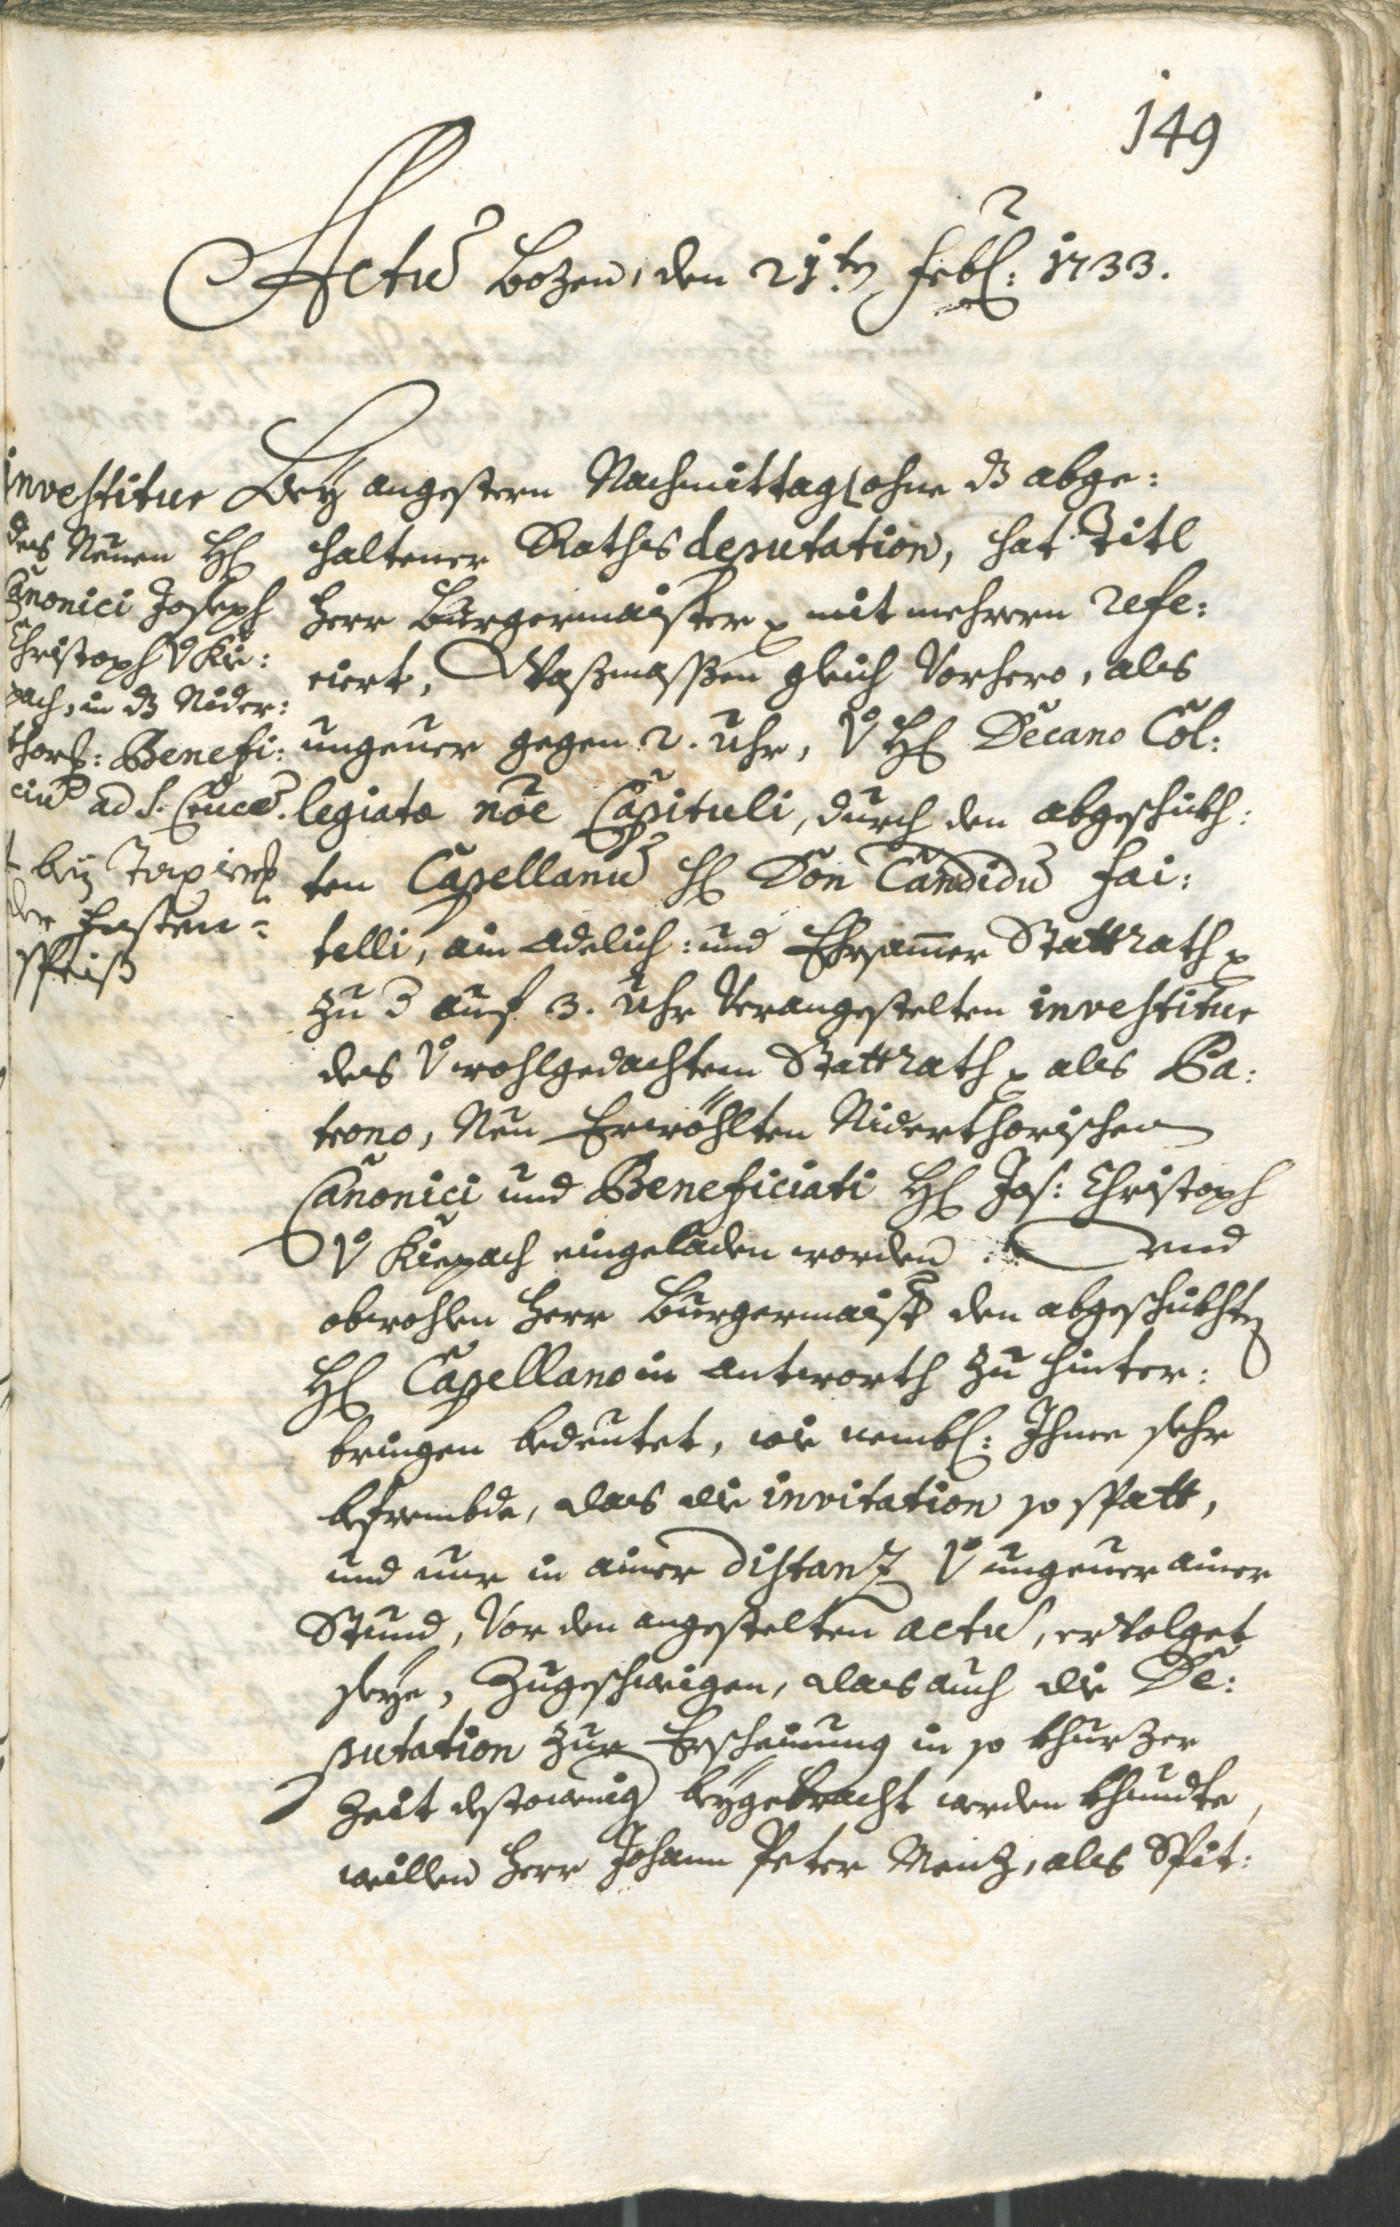 149
Actu̅ Bozen, den 21.ten Febl: 1733.
investitur
des Neuen Hl
Canonici Joseph
Christoph v Kie:
pach, in dz Nider:
thorl: Benefi:
ciu̅ ad S. Cruce̅.
bey
der Fasten=
speiß
Bey angestern Nachmittag ohne dz abge:
haltener Rathsdeputation, hat Titl
Herr Burgermaister p mit mehrern refe:
riert, Waßmassen gleich Vorhero, als
ungeuer gegen 2. Uhr, v Hl Decano Col:
legiatæ no̅e Capituli, durch den abgeschickh:
ten Capellanu̅ Hl Don Candidu̅ Fai:
telli, ain Adelich: und Ehrsamer Stattrath p
zu d auf 3. Uhr Verangestelten investitur
des v wohlgedachtem Stattrath p als Pa:
trono, Neu Erwöhlten Niderthorischen
Canonici und Beneficiati Hl Jos: Christoph
v Kiepach eingeladen worden. und
obwohlen Herr Burgermaistr den abgeschickhten
Hl Capellano in Antworth zu hinter:
bringen bedeutet, wie nembl: Ihme sehr
befrembde, das die invitation so spatt,
und nur in ainer distanz v ungeuer ainer
Stund, Vor den angestelten actu̅, ervolget
seye, Zugeschweigen, das auch die De:
putation zur Erscheinung in so khurzer
Zeit destowenig beygebracht werden khundte,
willen Herr Johann Peter Menz, als Spit: